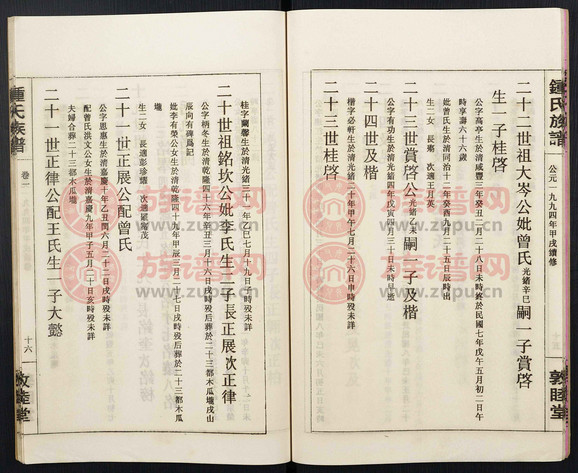 鍾氏族譜
公元一九九四年甲戌續修
敦睦堂
二十二世祖大岑公妣曾氏光緒辛巳嗣一子賞啓
生一子桂啓
公字高亭生於清咸豐三年癸丑二月二十八日未時終於民國七年戊午五月初二日午
時享壽六十六歲
妣曾氏生於清同治十二年癸酉九月二十五日辰時出
生二女 長 次適王月英
二十三世賞啓公光緒乙未嗣一子及楷
公字有功生於清光緒四年戊寅四月三十日未時早逝
二十四世及楷
楷字必軒生於清光緒二十年甲午七月二十六日申時歿未詳
二十三世桂啓
桂字蘭馨生於清光緒三十一年乙巳七月十九日子時歿未詳
二十世祖銘坎公妣李氏生二子長正展次正律
公字柄冬生於清乾隆四十六年辛丑三月十六日戌時歿后葬於二十三都木瓜壠戌山
辰向有碑爲記
妣李有榮公女生於清乾隆四十九年甲辰二月二十七日戌時歿后葬於二十三都木瓜
壠
生二女 長適彭珍耀 次適羅茂
二十一世正展公配曾氏
公字思惠生於清嘉慶十年乙丑閏六月二十二日戌時歿未詳
配曾氏洪文公女生於清嘉慶九年甲子五月二十日亥時歿未詳
夫婦合葬二十三都木瓜壠
二十一世正律公配王氏生一子大懿
鍾氏族譜
卷二
十六
敦睦堂
族譜网
www.zupu.cn
族譜网
www.zupu.cn